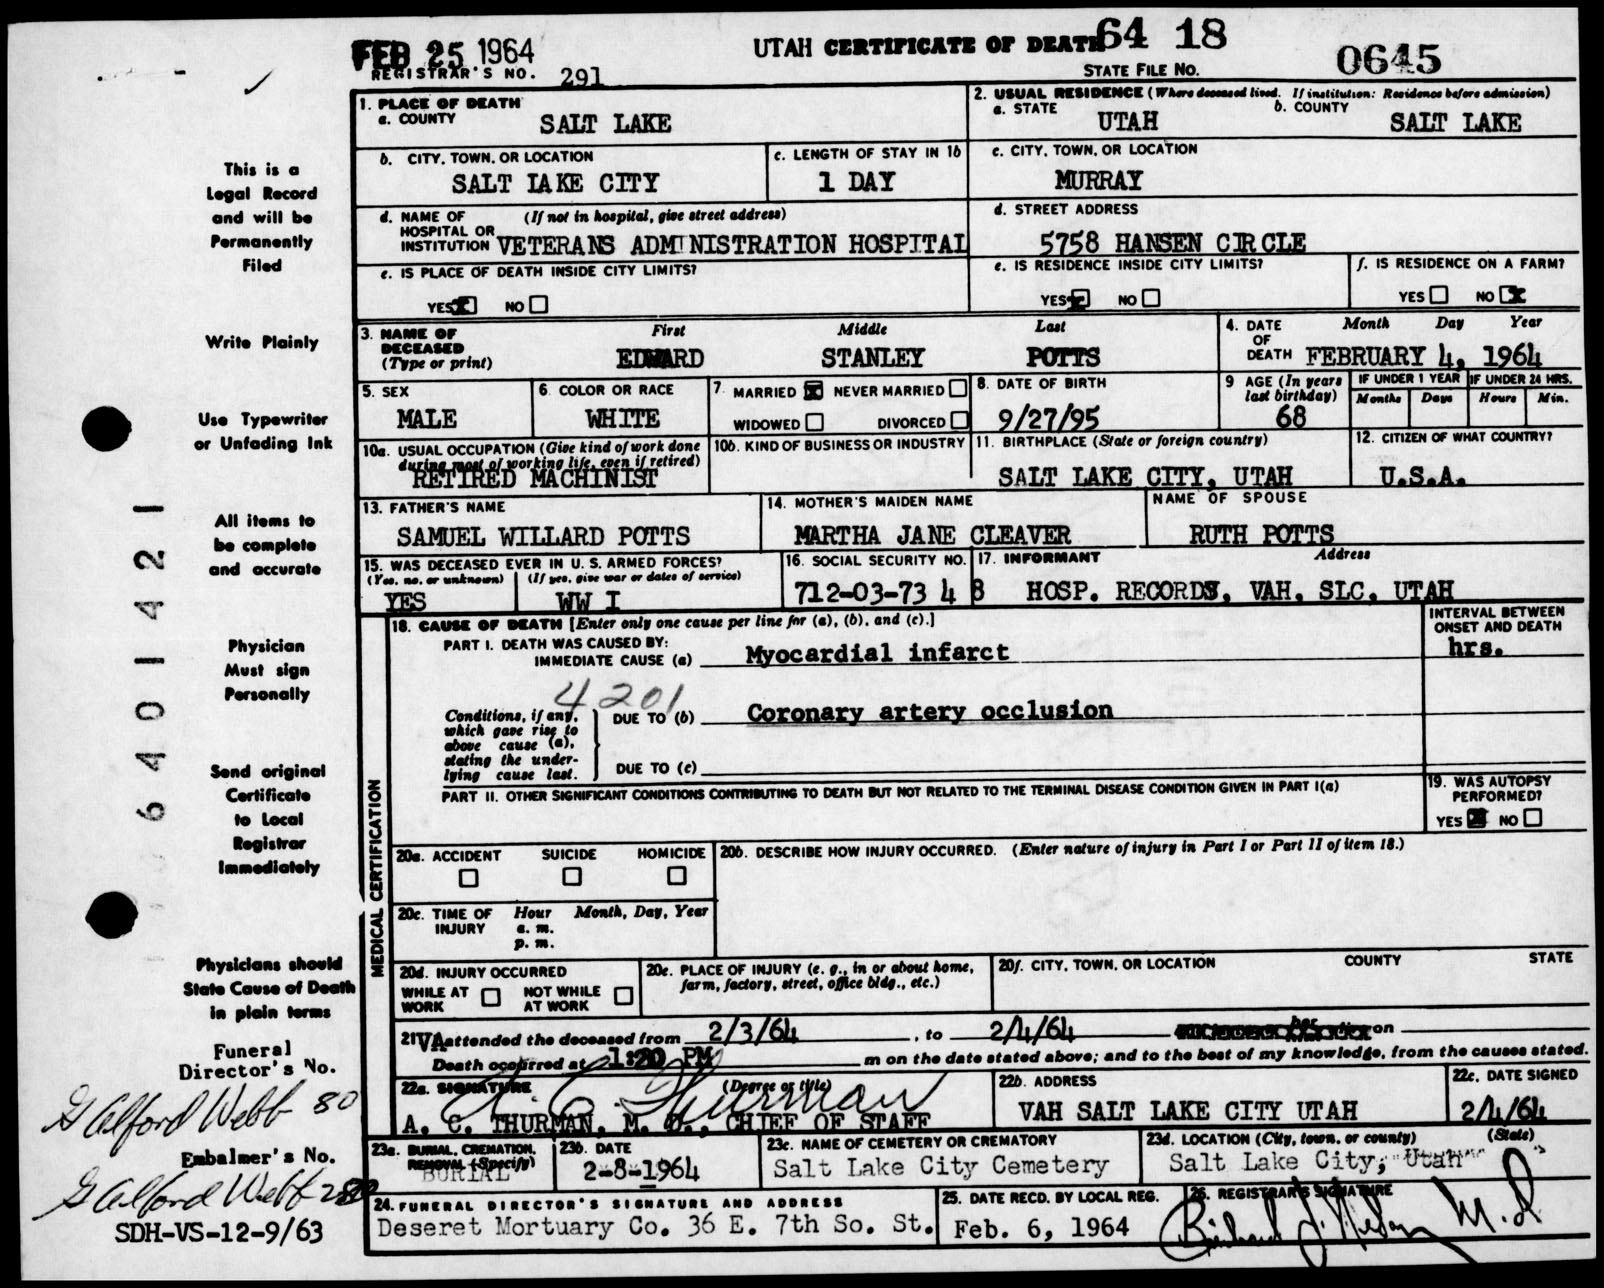 FEB 25 1964
UTAH CERTIFICATE OF DEATH 64 18
REGISTRAR'S NO. 291
STATE FILE NO. 0645
1. PLACE OF DEATH
a. COUNTY SALT LAKE
2. USUAL RESIDENCE (Where deceased lived. If institution: Residence before admission)
a. STATE UTAH b. COUNTY SALT LAKE
b. CITY, TOWN, OR LOCATION SALT LAKE CITY
c. LENGTH OF STAY IN 1b 1 DAY
c. CITY, TOWN, OR LOCATION MURRAY
d. NAME OF HOSPITAL OR INSTITUTION (If not in hospital, give street address) VETERANS ADMINISTRATION HOSPITAL
d. STREET ADDRESS 5758 HANSEN CIRCLE
e. IS PLACE OF DEATH INSIDE CITY LIMITS? YES X NO
e. IS RESIDENCE INSIDE CITY LIMITS? YES X NO
f. IS RESIDENCE ON A FARM? YES NO X
3. NAME OF DECEASED (Type or print) First EDWARD Middle STANLEY Last POTTS
4. DATE OF DEATH Month Day Year FEBRUARY 4, 1964
5. SEX MALE
6. COLOR OR RACE WHITE
7. MARRIED X NEVER MARRIED WIDOWED DIVORCED
8. DATE OF BIRTH 9/27/95
9 AGE (In years last birthday) 68
IF UNDER 1 YEAR Months Days
IF UNDER 24 HRS. Hours Min.
10a. USUAL OCCUPATION (Give kind of work done during most of working life, even if retired) RETIRED MACHINIST
10b. KIND OF BUSINESS OR INDUSTRY
11. BIRTHPLACE (State or foreign country) SALT LAKE CITY, UTAH
12. CITIZEN OF WHAT COUNTRY? U.S.A.
13. FATHER'S NAME SAMUEL WILLARD POTTS
14. MOTHER'S MAIDEN NAME MARTHA JANE CLEAVER
NAME OF SPOUSE RUTH POTTS
15. WAS DECEASED EVER IN U. S. ARMED FORCES?
(Yes, no, or unknown) YES (If yes, give war or dates of service) WW I
16. SOCIAL SECURITY NO. 712-03-73 4 8
17. INFORMANT Address HOSP. RECORDS, VAH, SLC, UTAH
MEDICAL CERTIFICATION
18. CAUSE OF DEATH [Enter only one cause per line for (a), (b), and (c).]
INTERVAL BETWEEN ONSET AND DEATH
PART I. DEATH WAS CAUSED BY:
IMMEDIATE CAUSE (a) Myocardial infarct hrs.
4201
Conditions, if any, which gave rise to above cause (a), stating the underlying cause last.
DUE TO (b) Coronary artery occlusion
DUE TO (c)
PART II. OTHER SIGNIFICANT CONDITIONS CONTRIBUTING TO DEATH BUT NOT RELATED TO THE TERMINAL DISEASE CONDITION GIVEN IN PART I(a)
19. WAS AUTOPSY PERFORMED? YES X NO
20a. ACCIDENT SUICIDE HOMICIDE
20b. DESCRIBE HOW INJURY OCCURRED. (Enter nature of injury in Part I or Part II of item 18.)
20c. TIME OF INJURY Hour a. m. p. m. Month, Day, Year
20d. INJURY OCCURRED WHILE AT WORK NOT WHILE AT WORK
20e. PLACE OF INJURY (e. g., in or about home, farm, factory, street, office bldg., etc.)
20f. CITY, TOWN, OR LOCATION COUNTY STATE
21 VA attended the deceased from 2/3/64, to 2/4/64 on
Death occurred at 1:20 PM m on the date stated above; and to the best of my knowledge, from the causes stated.
22a. SIGNATURE (Degree or title) A C Thurman
A. C. THURMAN, M. D., CHIEF OF STAFF
22b. ADDRESS VAH SALT LAKE CITY UTAH
22c. DATE SIGNED 2/4/64
23a. BURIAL, CREMATION, REMOVAL (Specify) BURIAL
23b. DATE 2-8-1964
23c. NAME OF CEMETERY OR CREMATORY Salt Lake City Cemetery
23d. LOCATION (City, town, or county) (State) Salt Lake City, Utah
24. FUNERAL DIRECTOR'S SIGNATURE AND ADDRESS
Deseret Mortuary Co. 36 E. 7th So. St.
25. DATE RECD. BY LOCAL REG. Feb. 6, 1964
26. REGISTRAR'S SIGNATURE M.D.
This is a
Legal Record
and will be
Permanently
Filed
Write Plainly
Use Typewriter
or Unfading Ink
All items to
be complete
and accurate
Physician
Must sign
Personally
Send original
Certificate
to Local
Registrar
Immediately
Physicians should
State Cause of Death
in plain terms
Funeral
Director's No.
G Alford Webb 80
Embalmer's No.
G Alford Webb
SDH-VS-12-9/63
6401421